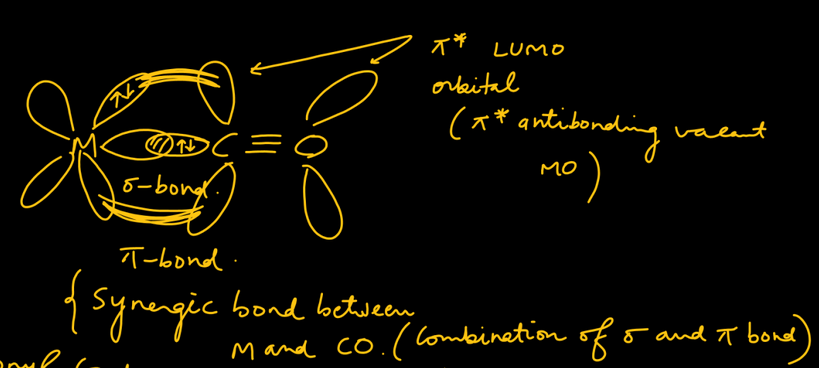 π* LUMO
orbital
(π* antibonding vacant
MO)
M C ≡ O
σ-bond.
π-bond.
{ Synergic bond between
M and CO. (Combination of σ and π bond)